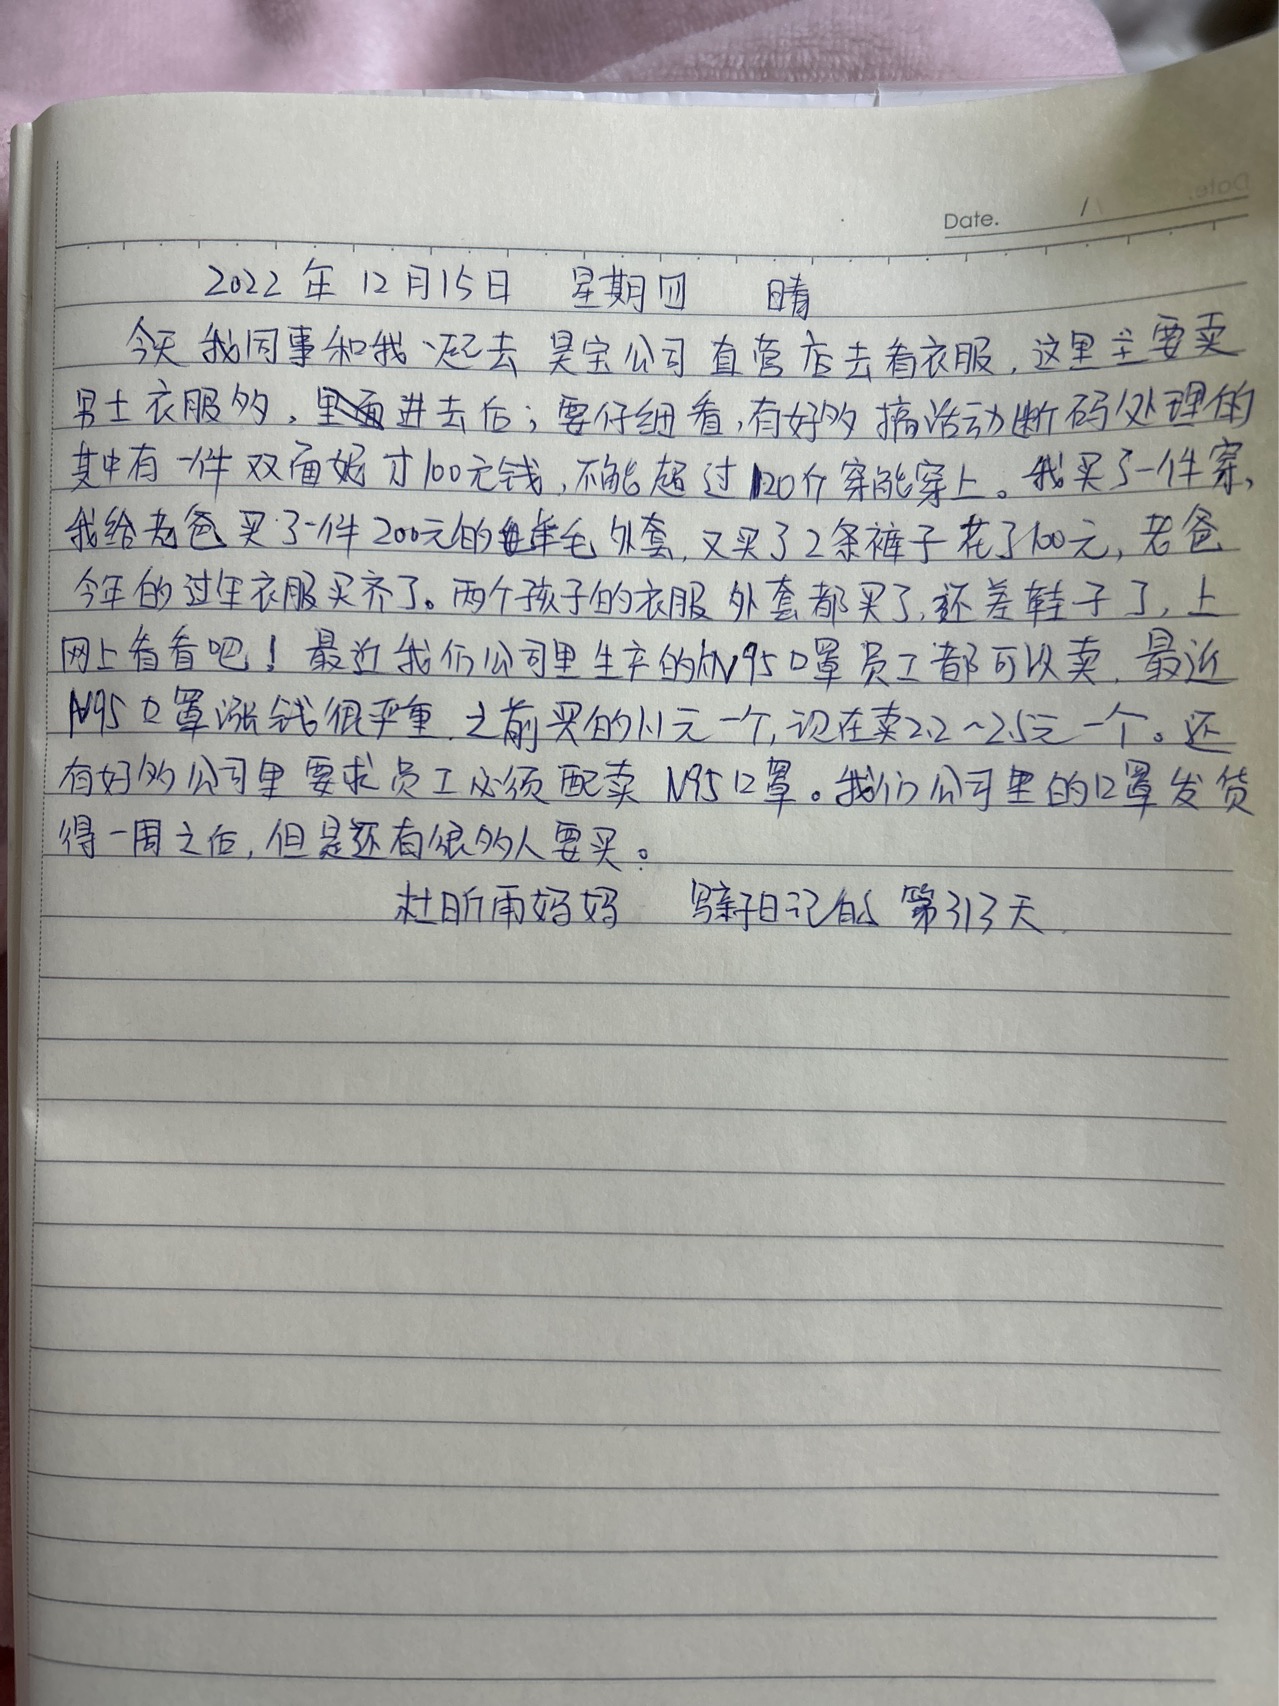 Date.
2022年12月15日 星期四 晴
今天我同事和我一起去昊宝公司直营店去看衣服,这里主要卖
男士衣服多,里面进去后;要仔细看,有好多搞活动断码处理的
其中有一件双面妮才100元钱,不能超过120斤穿能穿上。我买了一件穿,
我给老爸买了一件200元的羊毛外套,又买了2条裤子花了100元,老爸
今年的过年衣服买齐了。两个孩子的衣服外套都买了,还差鞋子了,上
网上看看吧!最近我们公司里生产的N95口罩员工都可以卖,最近
N95口罩涨钱很严重,之前买的1.1元一个,现在卖2.2~2.5元一个。还
有好多公司里要求员工必须配卖N95口罩。我们公司里的口罩发货
得一周之后,但是还有很多人要买。
杜昕雨妈妈 写亲子日记的第313天